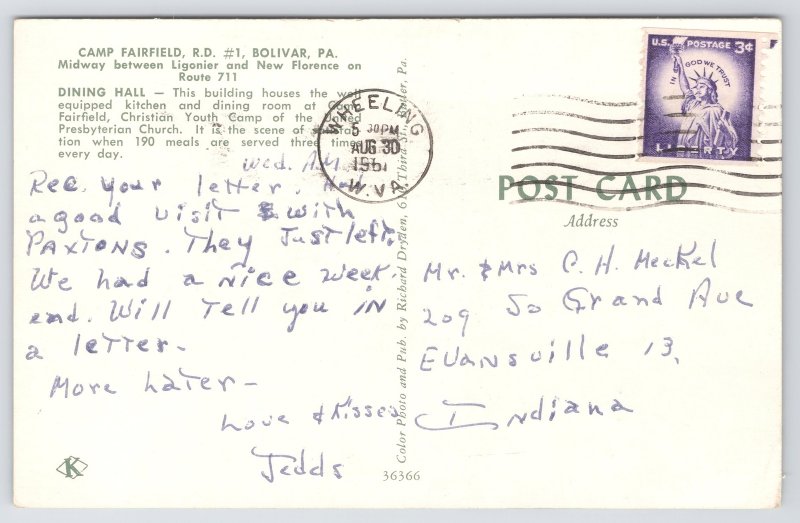 CAMP FAIRFIELD, R.D. #1, BOLIVAR, PA.
Midway between Ligonier and New Florence on
Route 711
DINING HALL — This building houses the well
equipped kitchen and dining room at Camp
Fairfield, Christian Youth Camp of the United
Presbyterian Church. It is the scene of
tion when 190 meals are served three times
every day.
Wed. A.M.
Rec. your letter. Had
a good visit with
PAXTONS. They Just left.
We had a nice week.
end. Will Tell you IN
a letter-
More Later-
Love & Kisses
Jedds
K
Color Photo and Pub. by Richard Dryden, 610 Third St., Butler, Pa.
36366
WHEELING
5 30 PM
AUG 30
1961
W. VA.
U.S. POSTAGE 3¢
IN GOD WE TRUST
LIBERTY
POST CARD
Address
Mr. & Mrs C. H. Meckel
209 So Grand Ave
Evansville 13,
Indiana